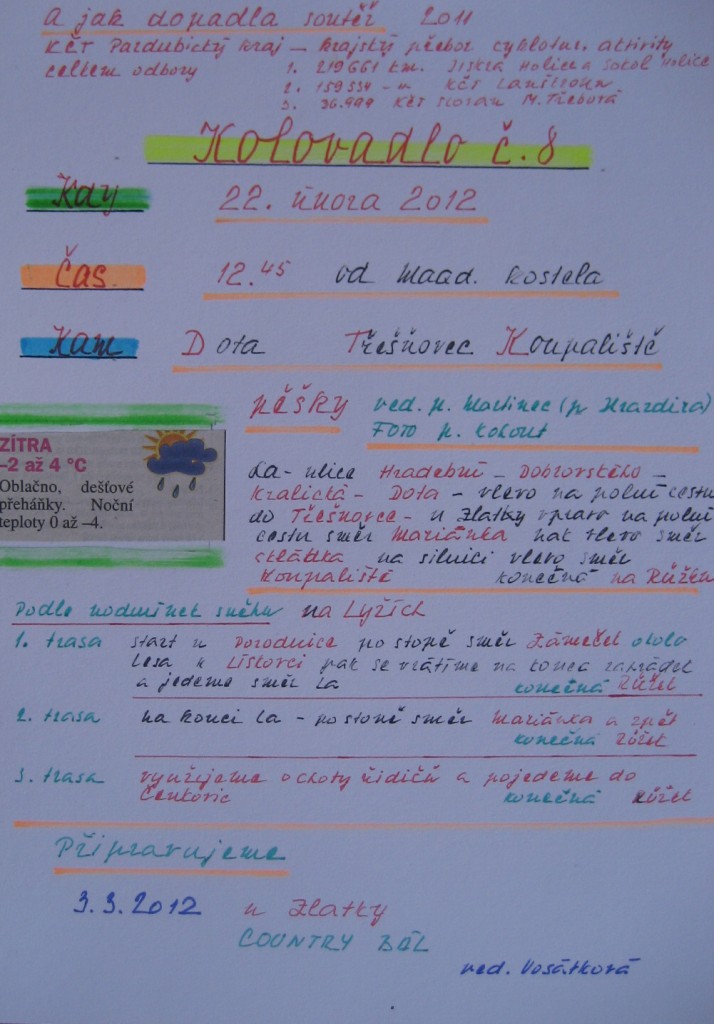 A jak dopadla soutěž 2011
KČT Pardubický kraj – Krajský přebor cyklotur. aktivity
celkem odbory 1. 219661 km. Jiskra Holice a Sokol Holice
2. 159534 -"- KČT Lanškroun
3. 36.999 KČT Slovan M. Třebová
Kolovadlo č. 8
Kdy 22. února 2012
Čas 12.45 od Maad. kostela
Kam Dota Třešňovec Koupaliště
pěšky ved. p. Martinec (p Hrazdira)
FOTO p. Kohout
ZÍTRA
–2 až 4 °C
Oblačno, dešťové
přeháňky. Noční
teploty 0 až –4.
La - ulice Hradební – Dobrovského –
Kralická – Dota – vlevo na polní cestu
do Třešňovce – u Zlatky vpravo na polní
cestu směr Mariánka pak vlevo směr
skládka na silnici vlevo směr
Koupaliště konečná na Růžku
Podle podmínek sněhu na Lyžích
1. trasa start u Porodnice po stopě směr Zámeček okolo
lesa k Liškovci pak se vrátíme na konec zahrádek
a jedeme směr La konečná Růžek
2. trasa na konci La – po stopě směr Mariánka a zpět
konečná Růžek
3. trasa využijeme ochoty řidičů a pojedeme do
Čenkovic konečná Růžek
Připravujeme
3.3.2012 u Zlatky
COUNTRY BÁL
ved. Vosátková